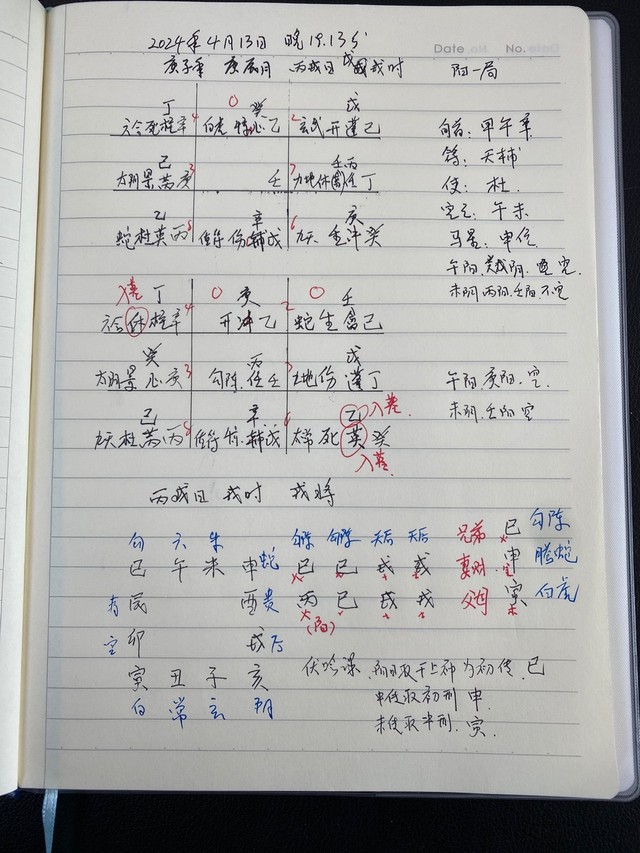 2024年4月13日 晚19.13分
Date No.
庚子年 庚辰月 丙戌日 戊戌时 阳一局
丁 0 癸 戊
六合死柱辛4 白虎惊心乙 2玄武开蓬己
己 壬丙
太阴景芮庚3 壬 7九地休任丁
乙 辛 庚
蛇杜英丙8 值符伤辅戊 6九天生冲癸
旬首：甲午辛
符：天辅
使：杜
空亡：午未
马星：申位
午阳
未阴 丙阳 壬阳 不空
入墓 丁 0 庚 0 壬
六合休柱辛4 开冲乙 2 蛇生禽己
癸 丙 戊
太阴景心庚3 勾陈 任壬 7 九地伤蓬丁
己 辛 乙 入墓
九天杜芮丙8 值符 辅戊 6 太常死英癸
入墓
午阳 庚阳 空
未阴 壬阳 空
丙戌日 戌时 戌将
勾 六 朱 勾陈 勾陈 天后 天后 兄弟 巳 勾陈
巳 午 未 申 蛇 巳 巳 戌 戌 妻财 申 空 腾蛇
青 辰 酉 贵 丙 巳 戌 戌 父母 寅 白虎
(阳)
空 卯 戌 后
寅 丑 子 亥 伏吟课 阳日取干上神为初传 巳
白 常 玄 阴 中传取初刑 申
末传取中刑 寅